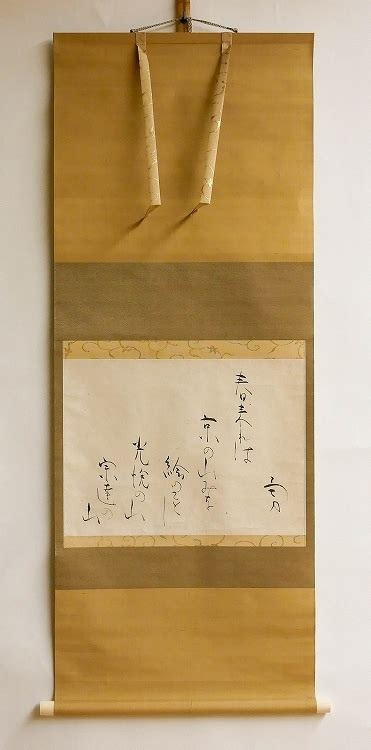 勇
春来れは
京の山みな
絵のことし
光悦の山
宗達の
山